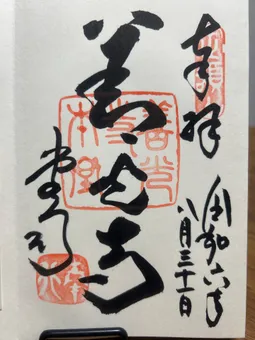 奉拝
令和六年
八月三十一日
善光寺
善光寺本堂